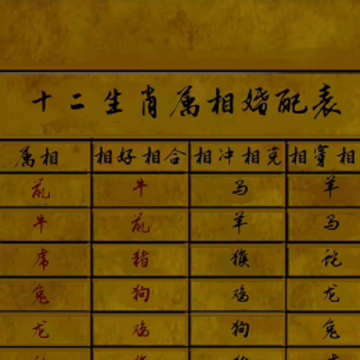 十二生肖属相婚配表
属相 相好相合 相冲相克 相穿相
鼠 牛 马 羊
牛 鼠 羊 马
虎 猪 猴 蛇
兔 狗 鸡 龙
龙 鸡 狗 兔